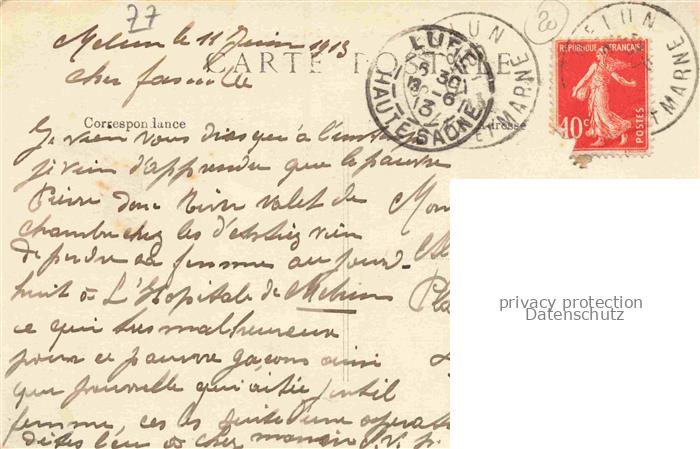 77
80
Melun le 11 Juin 1913
Cher
CARTE POSTALE
Correspondance
Adresse
LURE
HAUTE-SAONE
MELUN
MARNE
REPUBLIQUE FRANÇAISE
10c
POSTES
Je viens vous dire qu'à l'instant
je vien d'apprendre que le pauvre
Pierre donc votre valet de
chambre chez les vien
de perdre sa femme au jourd-
huit à L'Hopitale de Melun
ce qui tres malheureux
pour ce pauvre gaçons ainsi
que pour elle qui jentil
femme, ces es suite d'une operat
dites leu a cher
privacy protection
Datenschutz